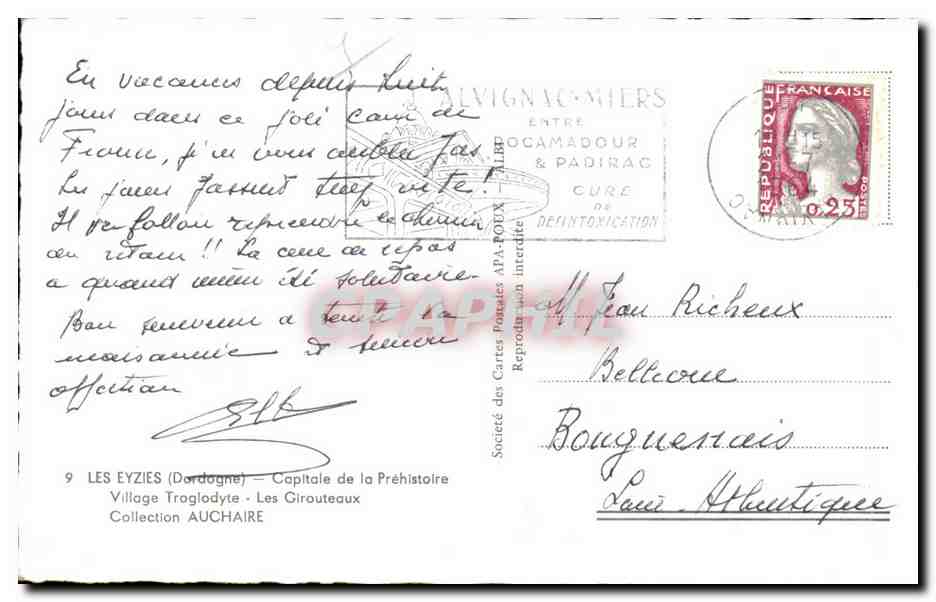 En vacances depuis huit
jours dans ce joli coin de
France, je ne vous oublie pas
Les jours passent trop vite !
Il va falloir reprendre le chemin
du retour !! La cure de repos
a quand même été salutaire.
Bon souvenir à toute la
maisonnée et sincère
affection
9 LES EYZIES (Dordogne) — Capitale de la Préhistoire
Village Troglodyte - Les Girouteaux
Collection AUCHAIRE
ALVIGNAC-MIERS
ENTRE
ROCAMADOUR
& PADIRAC
CURE
DE
DÉSINTOXICATION
Société des Cartes Postales APA-POUX - ALBI
Reproduction interdite
RÉPUBLIQUE FRANÇAISE
0,25
M. Jean Richeux
Bellevue
Bouguenais
Loire-Atlantique
CPAPHIL